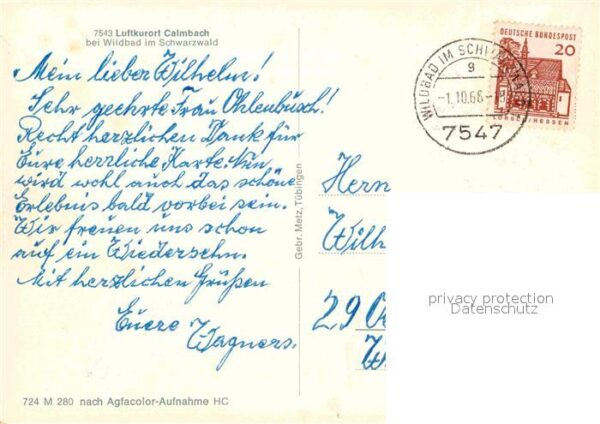 7543 Luftkurort Calmbach
bei Wildbad im Schwarzwald
Mein lieber Wilhelm!
Sehr geehrte Frau Ohlenbusch!
Recht herzlichen Dank für
Eure herrliche Karte. Nun
wird wohl auch das schöne
Erlebnis bald vorbei sein.
Wir freuen uns schon
auf ein Wiedersehn.
Mit herzlichen Grüßen
Euere
Wagners.
724 M 280 nach Agfacolor-Aufnahme HC
Gebr. Metz, Tübingen
DEUTSCHE BUNDESPOST
20
LORSCH/HESSEN
WILDBAD IM SCHWARZWALD
g
-1.10.68-
7547
Herrn
Wilh
29
privacy protection
Datenschutz